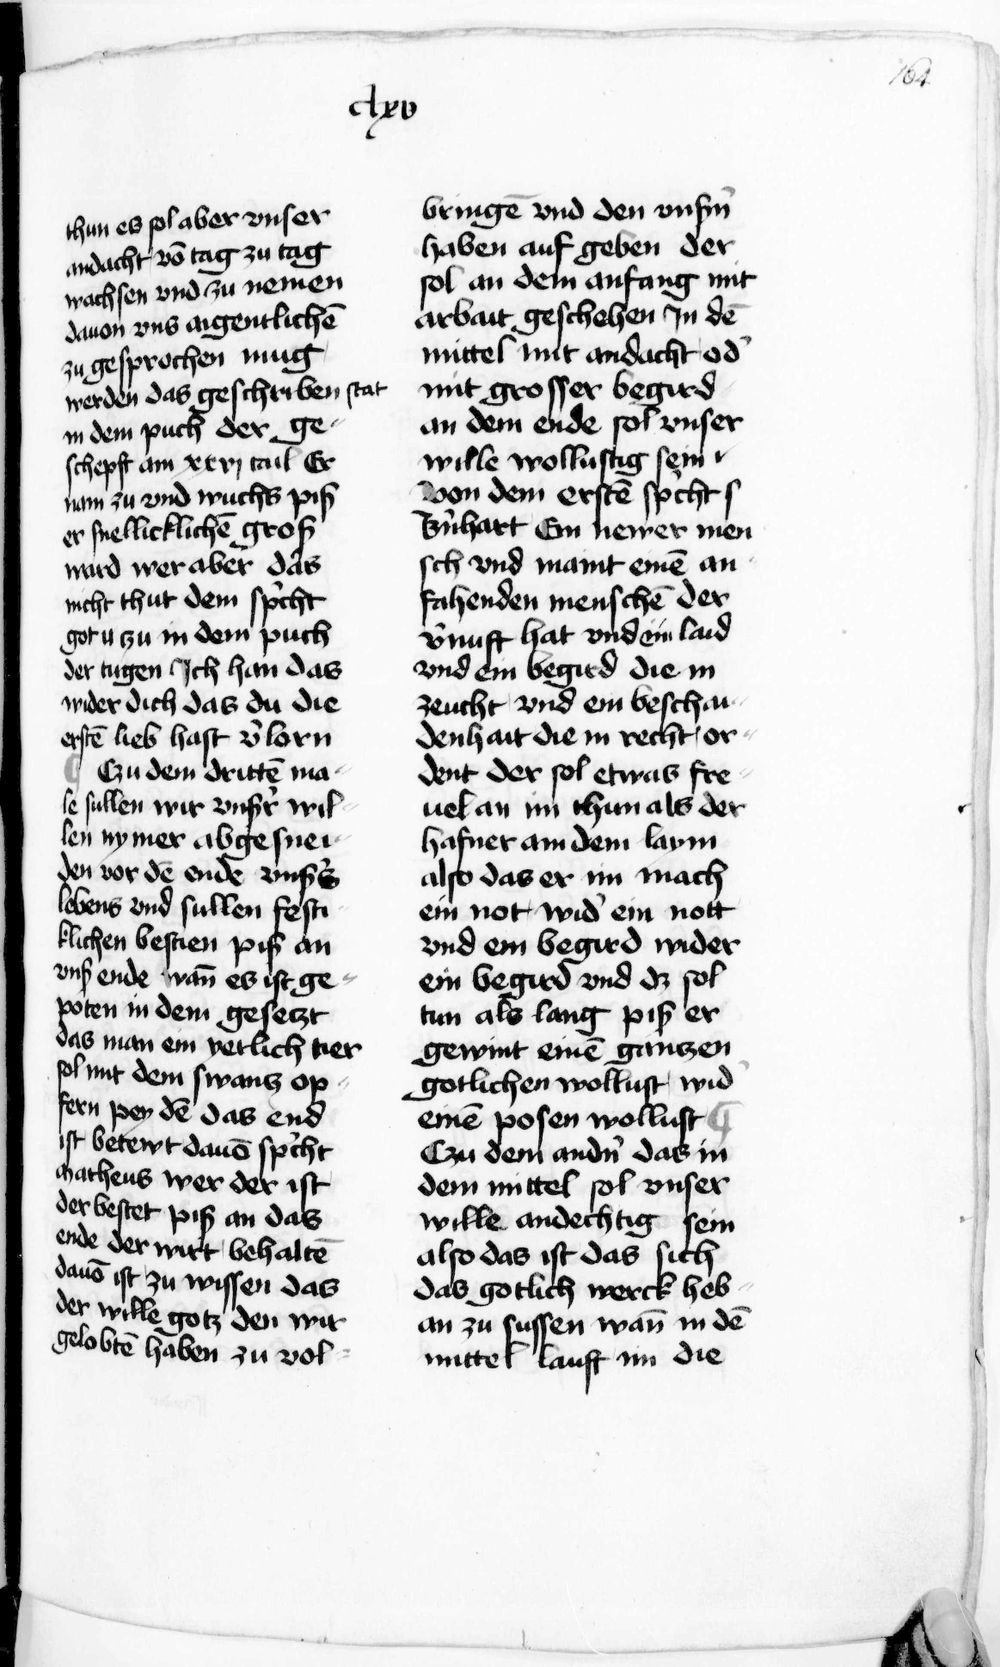 164
clxv
thun es sol aber vnser
andacht võ tag zu tag
wachsen vnd zu nemen
dauon vns aigentlichē
zu gesprochen mug
werden das geschriben stat
in dem puch der ge-
schepft am xxvj caul Er
nam zu vnd wuchs piß
er snellicklichē groß
ward wer aber das
nicht thut dem sp̃cht
got u tzu in dem puch
der tugen Ich han das
wider dich das du die
erstē lieb hast v̾lorn
¶ Czu dem drittē ma-
le sullen wir vnsr̾ wil-
len nymer abgesnei-
den vor dē ende vnsß
lebens vnd sullen festi-
klichen bestien piß an
vnß ende wañ es ist ge-
poten in dem gesetzt
das man ein yetlich tier
sol mit dem swantz op-
fern pey dē das end
ist betewt dauō sp̃cht
Matheus wer der ist
der bestet piß an das
ende der wirt behaltē
dauō ist zu wissen das
der wille gotz den wir
gelobtē haben zu vol-
bringē vnd den vnsm̃
haben auf geben der
sol an dem anfang mit
arbait geschehen In dē
mittel mit andacht od̾
mit grosser begird
an dem ende sol vnser
wille wollustig sein
Von dem erstē sp̃cht s
Bñhart Ein newer men
sch vnd maint einē an-
fahenden menschē der
v̾nuft hat vnd ein laid
vnd ein begird die in
zeucht vnd ein beschai-
denhait die in recht or-
dent der sol etwas fre-
uel an im thun als der
hafner am dem laym
also das er im mach
ein not wid̾ ein nott
vnd ein begird wider
ein begird vnd dz sol
tun als lang piß er
gewint einē gantzen
gotlichen wollust wid̾
einē posen wollust ¶
Czu dem andñ das in
dem mittel sol vnser
wille andechtig sein
also das ist das sich
das gotlich werck heb-
an zu sussen wañ in dē
mittel lauft im die